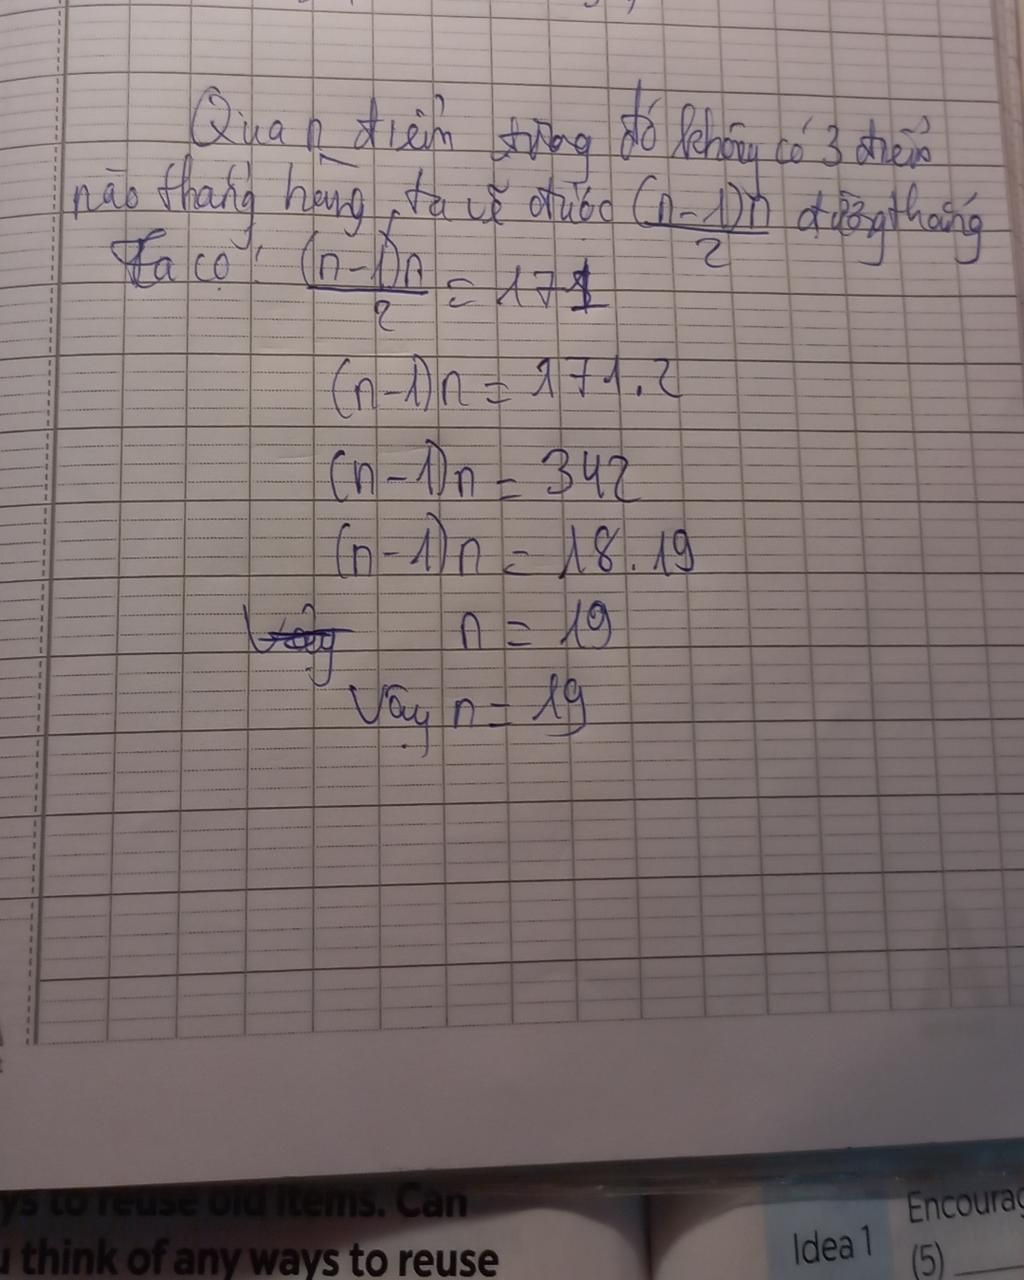 Qua n điểm trong đó không có 3 điểm
nào thẳng hàng, ta vẽ được (n-1)n/2 đường thẳng
Ta có: (n-1)n/2 = 171
(n-1)n = 171.2
(n-1)n = 342
(n-1)n = 18.19
n = 19
Vậy n = 19
ys to reuse old items. Can
u think of any ways to reuse
Idea 1
Encourag
(5)